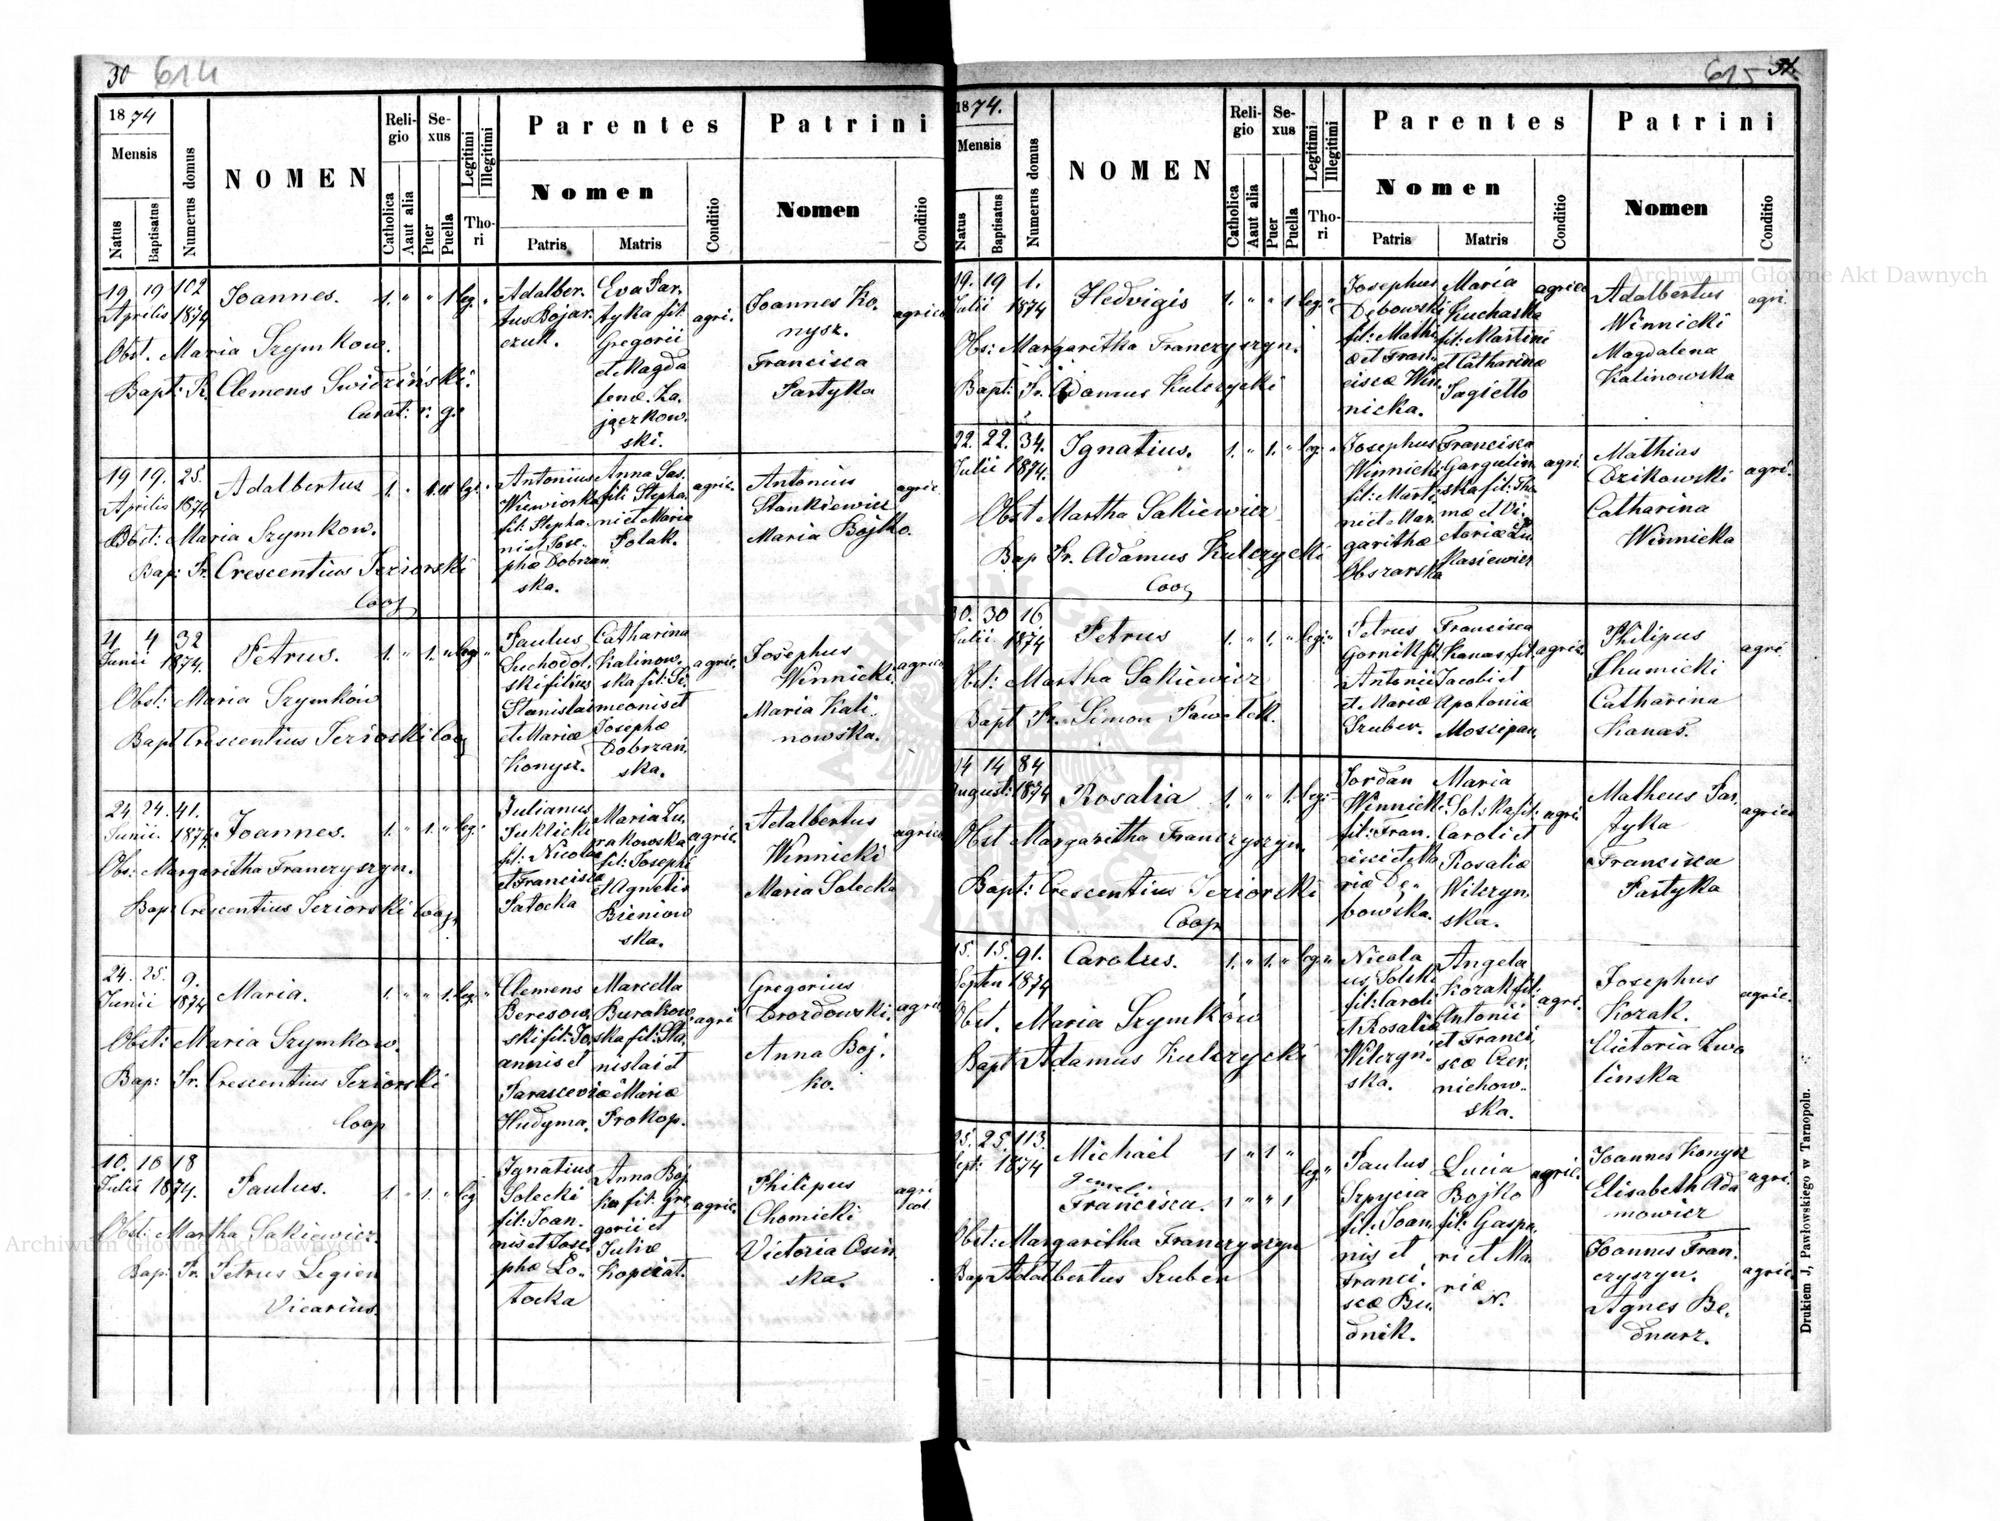 30 614
1874
Mensis
Natus
Baptisatus
Numerus domus
NOMEN
Religio
Catholica
Aaut alia
Sexus
Puer
Puella
Legitimi
Illegitimi
Thori
Parentes
Nomen
Patris
Matris
Conditio
Patrini
Nomen
Conditio
19 19 102
Aprilis 1874
Joannes.
1. " " 1 leg. "
Obst. Maria Szymkow.
Bapt: Fr. Clemens Swidziński.
Curat: r. g.
Adalber.
tus Bojar.
czuk.
Eva Par.
tyka fil:
Gregorii
et Magda
lenæ Za.
jączkow.
ski.
agri.
Joannes Ko.
nysz.
Francisca
Partyka
agrico
19 19. 25.
Aprilis 1874
Adalbertus
1. " 1. " leg. "
Obst: Maria Szymkow.
Bap: Fr. Crescentius Jeziorski
Coop
Antonius
Wiewiorka
fil: Stepha
ni et Jose.
phæ Dobrzań
ska.
Anna Sas.
fil: Stepha.
ni et Maria
Polak.
agric.
Antonius
Stankiewicz
Maria Bojko.
agric.
4 4 32
Junii 1874.
Petrus.
1. " 1. " leg "
Obst: Maria Szymków
Bapt Crescentius Jezioski Coop
Paulus
Suchodol.
ski filius
Stanislai
et Mariæ
Konysz.
Catharina
Kalinow.
ska fil: Si
meonis et
Josephæ
Dobrzań.
ska.
agric.
Josephus
Winnicki.
Maria Kali.
nowska.
agrico
24. 24. 41.
Junii 1874.
Joannes.
1. " 1. " leg. "
Obs: Margaritha Franczyszyn.
Bap: Crescentius Jeziorski Coop
Julianus
Puklicki
fil: Nicolai
et Franciscæ
Patocka
Maria Zu.
rakowska
fil: Josephi
et Agnetis
Bieniow
ska.
agric.
Adalbertus
Winnicki
Maria Solecka
agrico
24. 25. 9.
Junii 1874
Maria.
1. " " 1. leg. "
Obst: Maria Szymkow.
Bap: Fr. Crescentius Jeziorski
Coop
Clemens
Beresow.
ski fil: Jo.
annis et
Parasceviæ
Hudyma.
Marcella
Burakow.
ska fil: Sta.
nislai et
Mariæ
Prokop.
agri
Gregorius
Drozdowski.
Anna Boj.
ko.
agric.
10. 10 18
Julii 1874.
Paulus.
1. " 1. " leg
Obst: Martha Sakiewicz.
Bap: Fr. Petrus Legien
Vicarius.
Ignatius
Solecki
fil: Joan.
nis et Jose.
phæ Lo.
tocka
Anna Boj
ko fil: Gre
gorii et
Juliæ
Kopciat.
agric.
Philipus
Chomicki
Victoria Osin
ska.
agri
col.
615 31.
1874.
Mensis
Natus
Baptisatus
Numerus domus
NOMEN
Religio
Catholica
Aaut alia
Sexus
Puer
Puella
Legitimi
Illegitimi
Thori
Parentes
Nomen
Patris
Matris
Conditio
Patrini
Nomen
Conditio
19. 19 1.
Julii 1874
Hedvigis
1. " " 1 leg. "
Obs: Margaritka Franczyszyn.
Bapt: Fr. Adamus Kulczycki
Josephus
Dębowski
fil: Mathi
æ et Fran.
ciscæ Win.
nicka.
Maria
Kucharska
fil: Martini
et Catharinæ
Jagiełło
agrico
Adalbertus
Winnicki
Magdalena
Kalinowska
agri.
22. 22. 34.
Julii 1874.
Ignatius.
1. " 1. " leg. "
Obst Martha Sakiewicz
Bap Fr. Adamus Kulczycki
Coop
Josephus
Winnicki
fil: Marti.
ni et Mar.
garithæ
Obszarska
Francisca
Gargulin
ska fil: Tho
mæ et Vi.
ctoriæ Łu
kasiewicz
agri.
Mathias
Dzikowski
Catharina
Winnicka
agri.
30. 30 16.
Julii 1874
Petrus
1. " 1. " leg. "
Obst: Martha Sakiewicz
Bapt Fr. Simon Pawełek.
Petrus
Gornik fil.
Antonii
et Mariæ
Szuber.
Francisca
Kanas fil.
Jacobi et
Apoloniæ
Moscipan.
agric.
Philipus
Chumicki
Catharina
Kanas.
agri.
14 14 84
Augusti 1874
Rosalia
1. " " 1. leg. "
Obst Margaritha Franczyszyn.
Bapt: Crescentius Jeziorski
Coop
Jordan
Winnicki
fil: Fran.
cisci et Ma
riæ Dę.
bowska.
Maria
Sol: ska fil:
Caroli et
Rosaliæ
Wilczyn.
ska.
agri.
Matheus Par.
tyka
Francisca
Partyka
agrico
15. 15. 91.
Septem 1874
Carolus.
1. " 1. " leg. "
Obst. Maria Szymków
Bapt Adamus Kulczycki
Nicola
us Solski
fil: Caroli
et Rosaliæ
Wilczyn.
ska.
Angela
Kozak fil:
Antonii
et Franci.
scæ Czer.
niehow.
ska.
agri.
Josephus
Kozak.
Victoria Zwo
linska
agric.
25. 25. 113.
Sept: 1874
Michael
1 " 1 "
gemeli
leg. "
Francisca.
1 " " 1
Obst: Margaritha Franczyszyn
Bap Adalbertus Szuber
Paulus
Szpycia
fil: Joan.
nis et
Franci.
scæ Bu.
dnik.
Lucia
Bojko
fil: Gaspa.
ri et Ma.
riæ
N.
agric.
Joannes Konysz
Elisabeth Ada
mowicz
agri.
Joannes Fran.
czyszyn.
Agnes Be.
dnarz.
agric.
Drukiem J, Pawłowskiego w Tarnopolu.
Archiwum Główne Akt Dawnych
Archiwum Główne Akt Dawnych